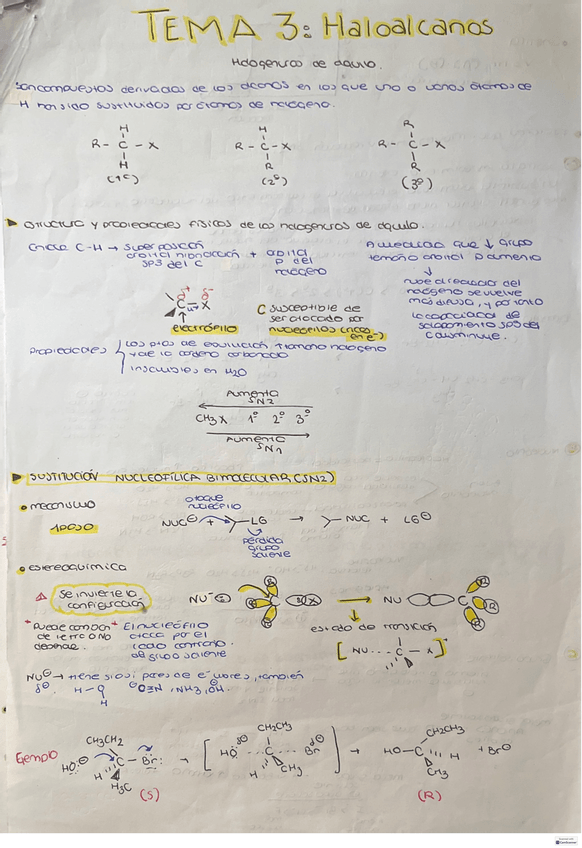 TEMA 3: Haloalcanos
Halogenuros de alquilo.
son compuestos derivados de los alcanos en los que uno o varios átomos de
H han sido sustituidos por átomos de halógeno.
H H R
R - C - X R - C - X R - C - X
H R R
(1º) (2º) (3º)
Estructura y propiedades físicas de los halogenuros de alquilo.
Enlace C-H → superposición
orbital hibridación + orbital
sp3 del C p del
halógeno
A medida que ↓ grupo
tamaño orbital p aumenta
↓
nube electrónica del
halógeno se vuelve
más difusa, y por tanto
la capacidad de
solapamiento sp3 del
C disminuye.
δ+ δ-
C X
electrófilo
C susceptible de
ser atacado por
nucleófilos (ricos
en e-)
Propiedades
Los ptos de ebullición ↑ tamaño halógeno
y de la cadena carbonada
insolubles en H2O
Aumenta
SN2
CH3X 1º 2º 3º
Aumenta
SN1
SUSTITUCIÓN NUCLEOFÍLICA BIMOLECULAR (SN2)
mecanismo
1 paso
ataque
nucleófilo
NUC⊖ + LG → NUC + LG⊖
pérdida
grupo
saliente
estereoquímica
⚠ Se invierte la
configuración
NU R R R C X → NU C R R R
* Puede cambiar
de letra o no
* El nucleófilo
ataca por el
lado contrario
al grupo saliente
estado de transición
[NU ... C - X]
NU⊖ → tiene siosi pares de e- libres, también
δ⊖ H - O ⊖C≡N, NH3, OH.
H
Ejemplo
CH3CH2 CH2CH3 CH2CH3
HO:⊖ C - Br: → [HO ... C ... Br] → HO - C H + Br⊖
H δ⊖ δ⊖
H3C H CH3 CH3
(S) (R)
CamScanner